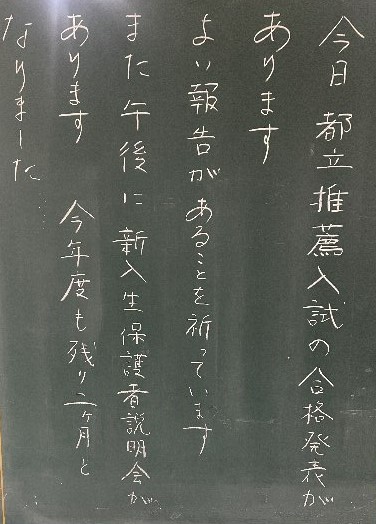 今日都立推薦入試の合格発表が
あります
よい報告があることを祈っています
また午後に新入生保護者説明会が
あります 今年度も残り二ヶ月と
なりました